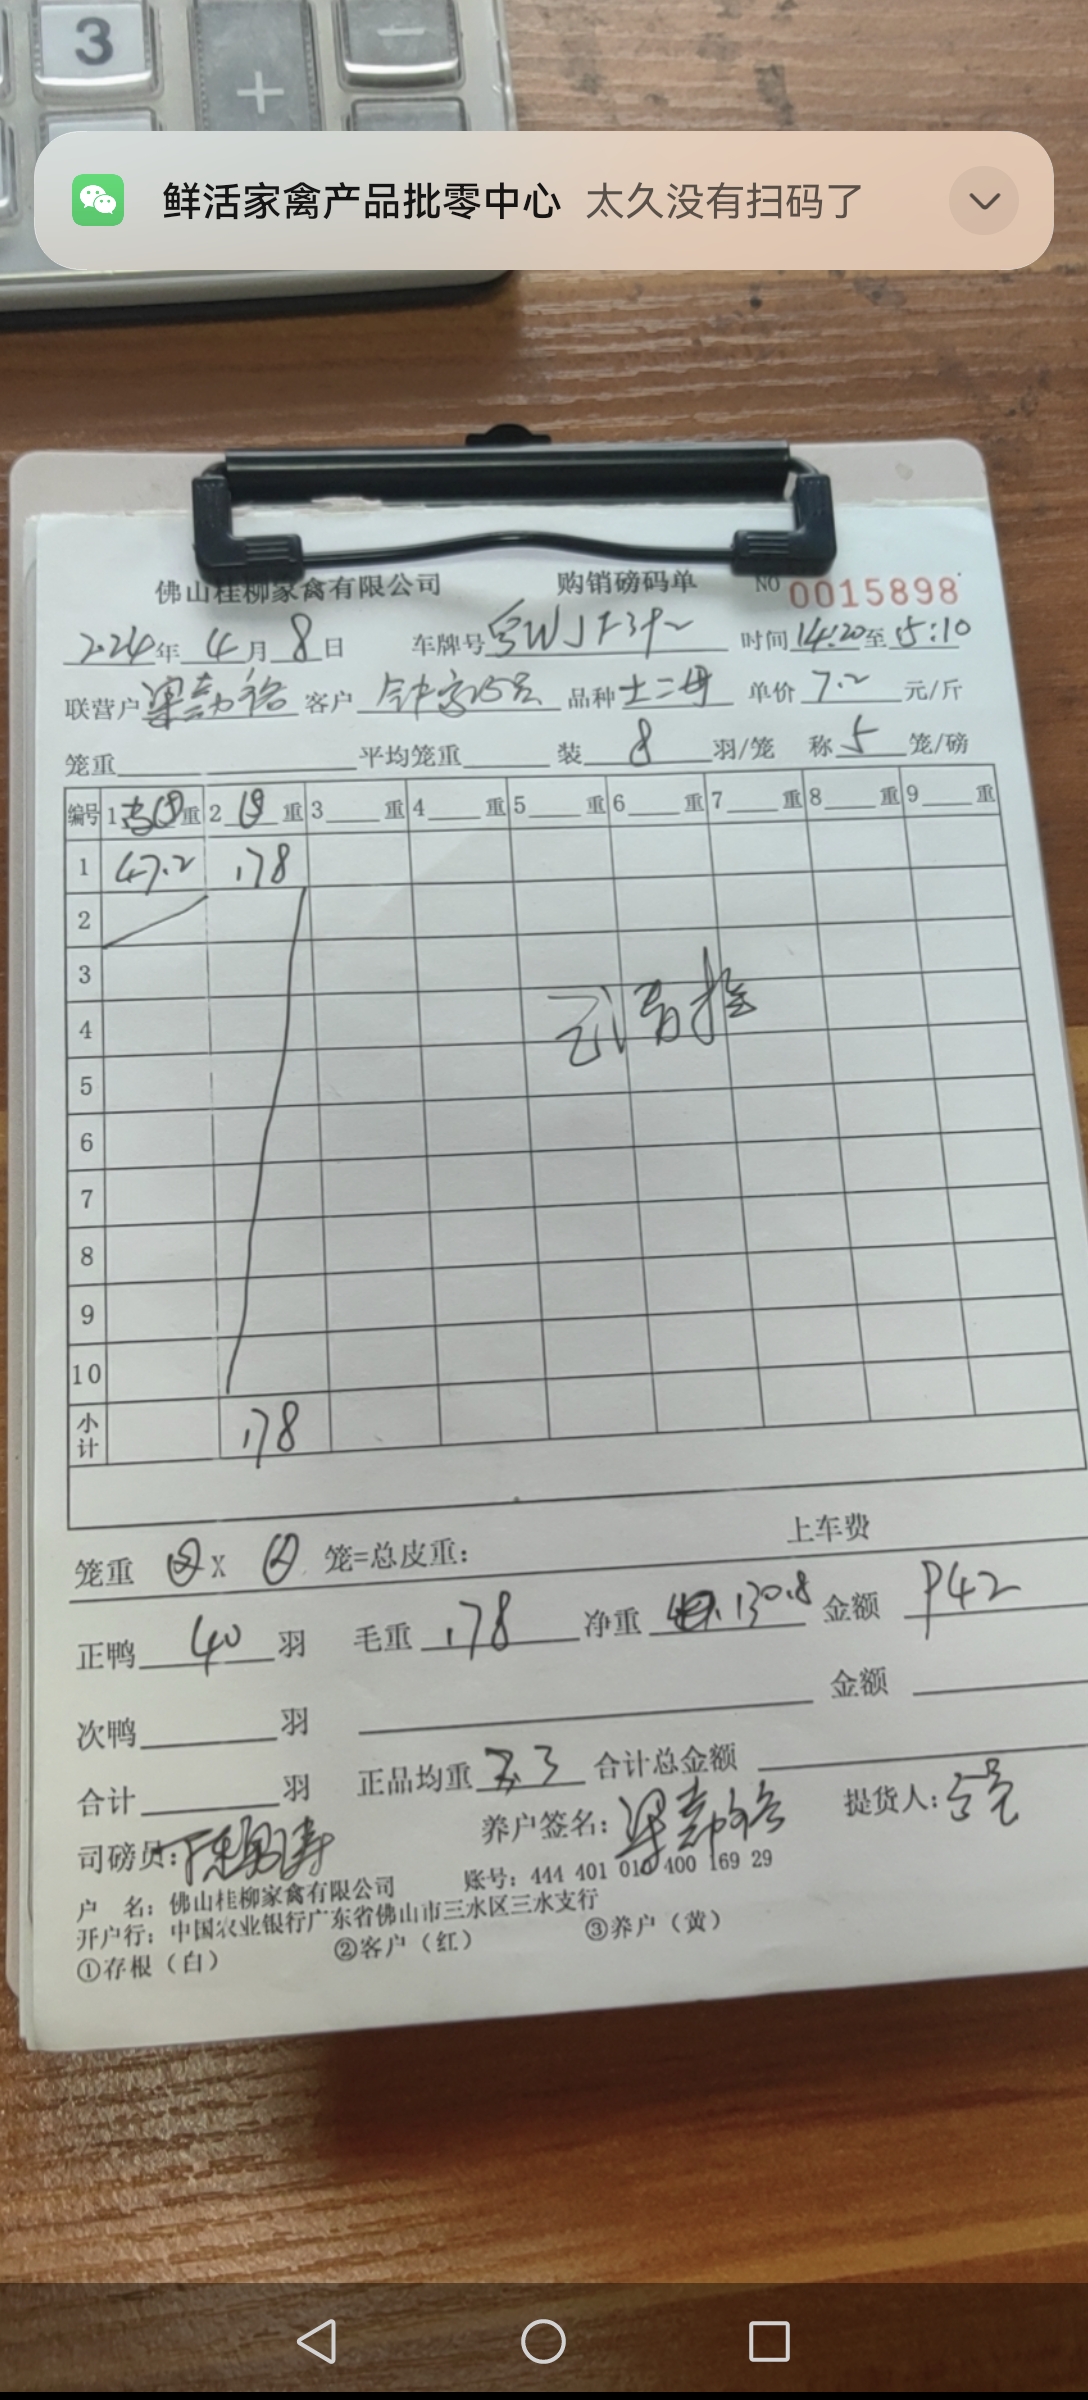 3
+
−
鲜活家禽产品批零中心 太久没有扫码了
佛山桂柳家禽有限公司 购销磅码单 NO 0015898
2024年 4月 8日 车牌号 时间 14:20 至 15:10
联营户 客户 品种 土二母 单价 7.2 元/斤
笼重 平均笼重 装 8 羽/笼 称 5 笼/磅
编号 1 重 2 重 3 重 4 重 5 重 6 重 7 重 8 重 9 重
1 47.2 178
2
3
4
5
6
7
8
9
10
小计 178
笼重 X 笼=总皮重: 上车费
正鸭 40 羽 毛重 178 净重 130.8 金额 942
次鸭 羽 金额
合计 羽 正品均重 合计总金额
司磅员: 养户签名: 提货人:
户 名: 佛山桂柳家禽有限公司 账号: 444 401 010 400 169 29
开户行: 中国农业银行广东省佛山市三水区三水支行
①存根（白） ②客户（红） ③养户（黄）